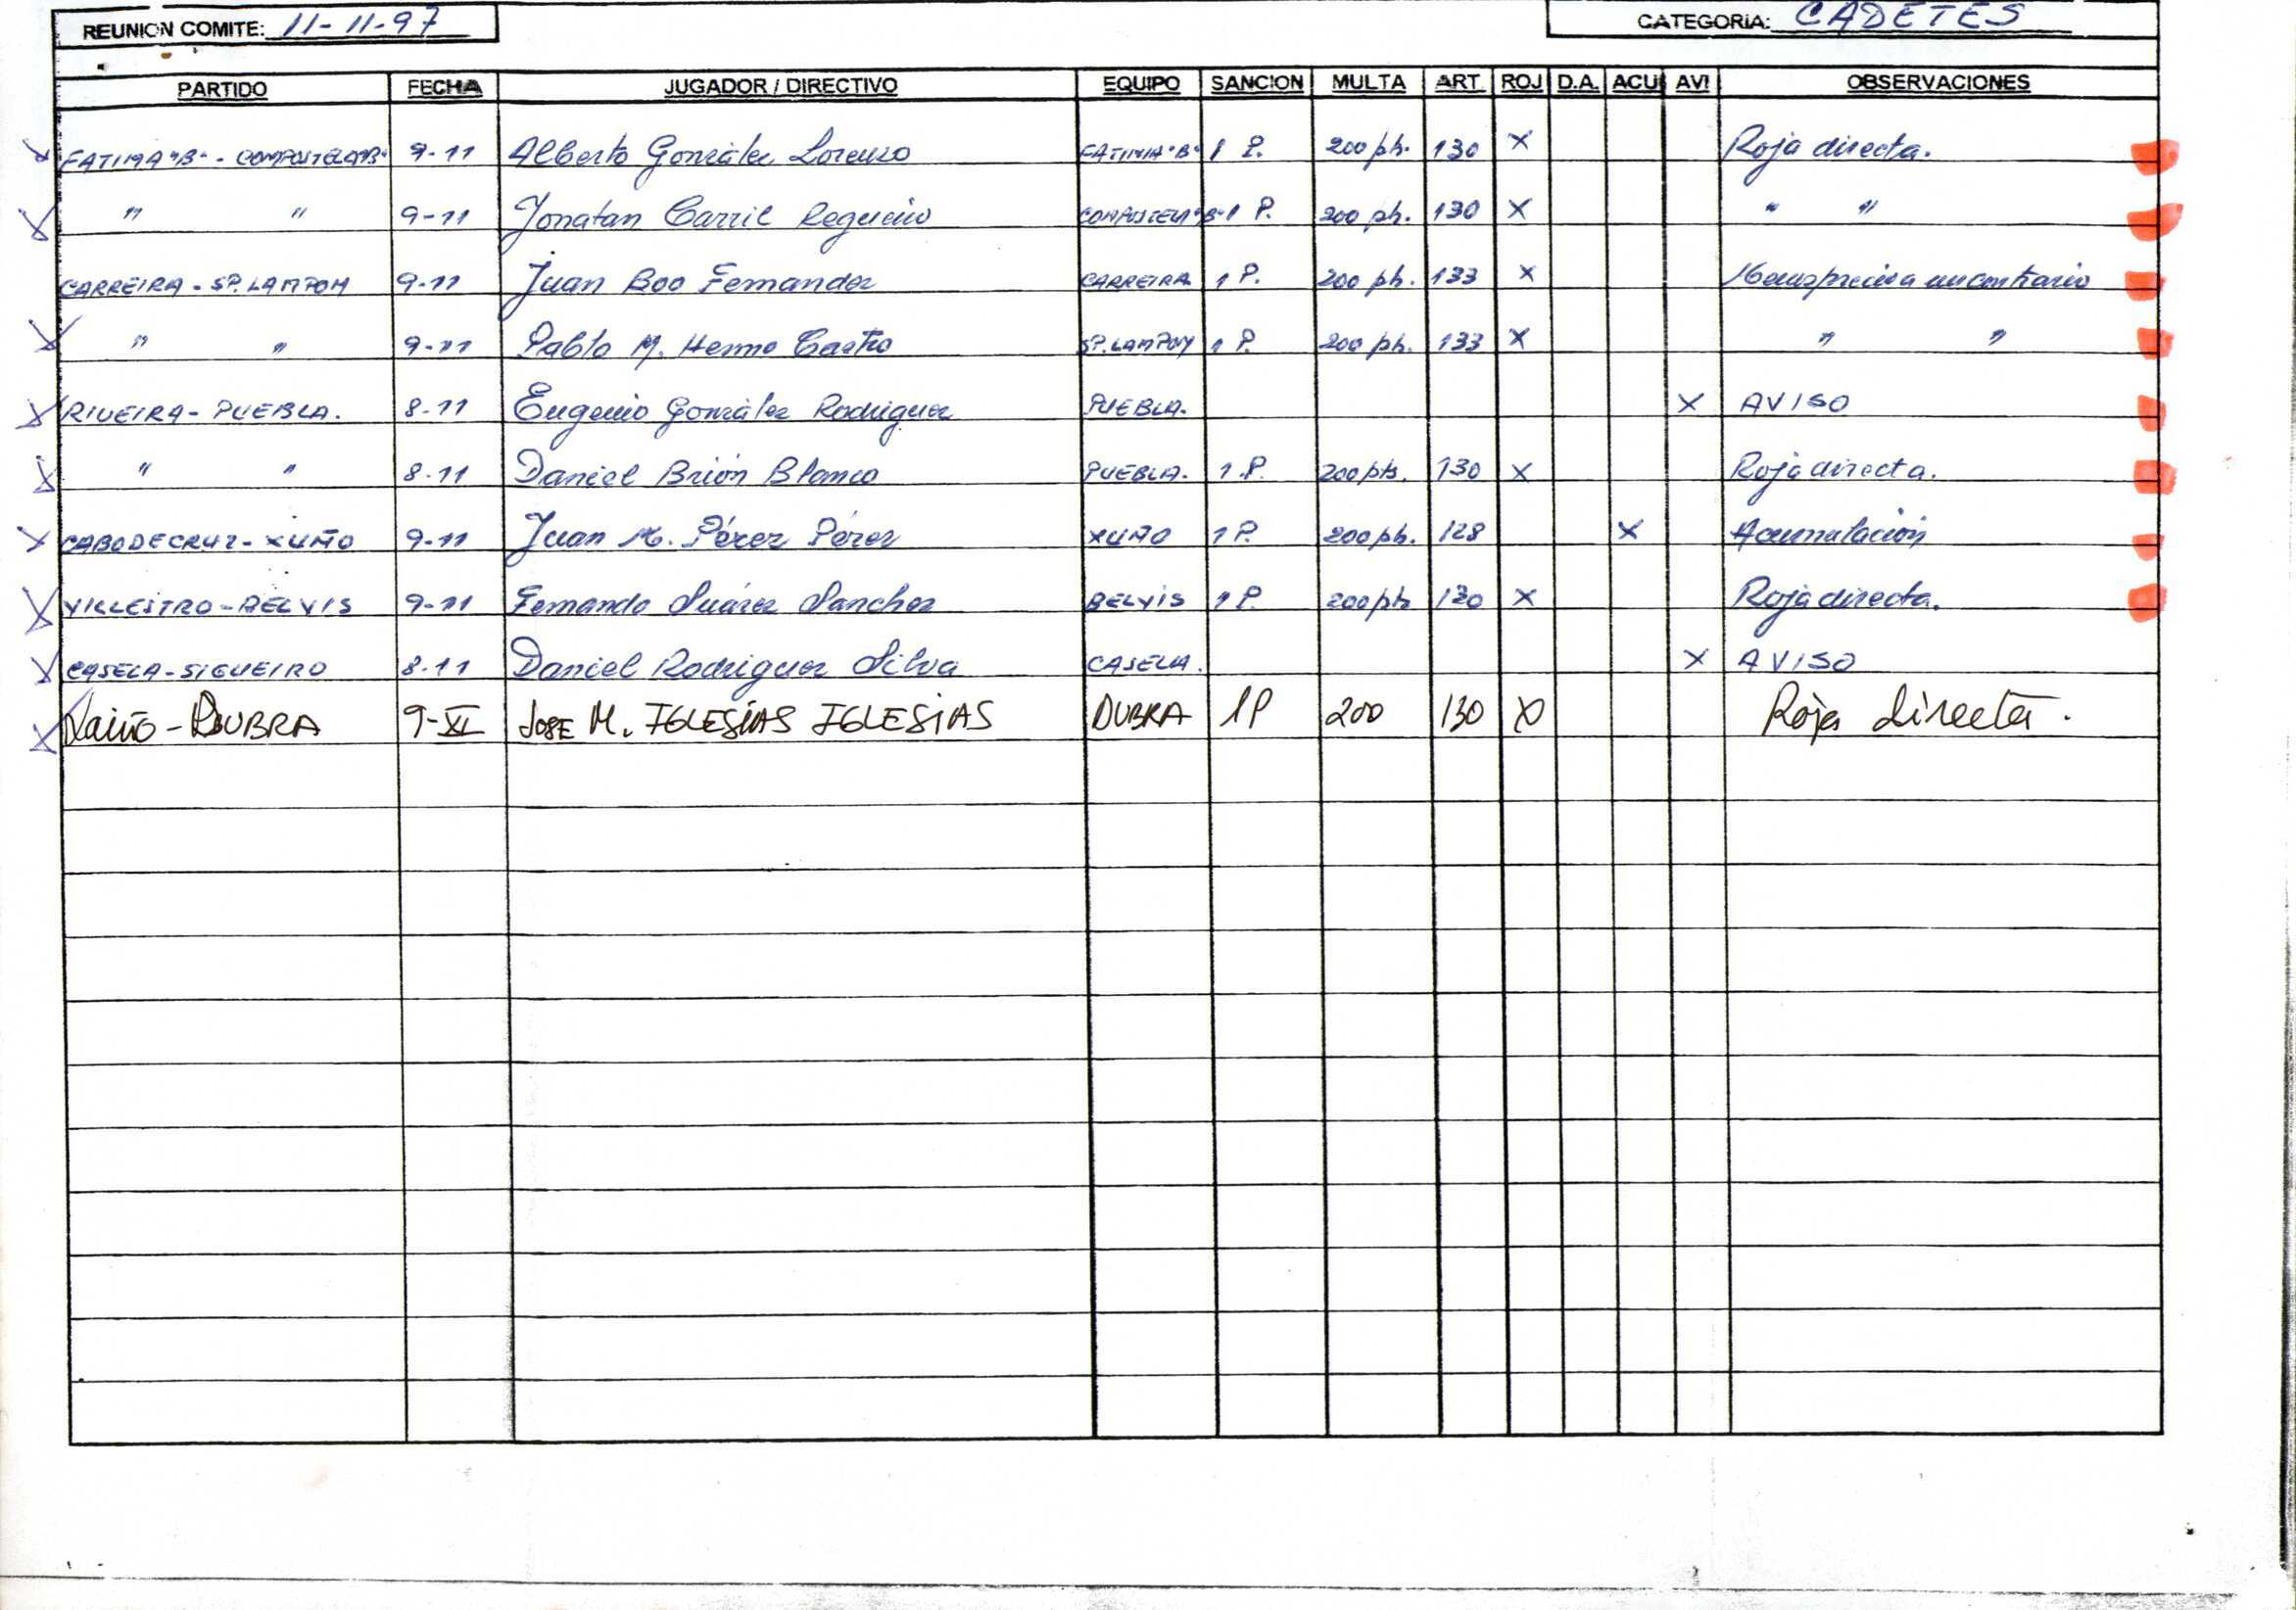 REUNION COMITE: 11-11-97 CATEGORIA: CADETES
PARTIDO FECHA JUGADOR / DIRECTIVO EQUIPO SANCION MULTA ART ROJ D.A. ACU AVI OBSERVACIONES
FATIMA "B" - COMPOSTELA "B" 9-11 Alberto González Lorenzo FATIMA "B" 1 P. 200 pts. 130 X Roja directa.
" " 9-11 Jonatan Carril Regueiro COMPOSTELA "B" 1 P. 200 pts. 130 X " "
CARREIRA - SP. LAMPON 9-11 Juan Boo Fernandez CARREIRA 1 P. 200 pts. 133 X Menosprecio a un contrario
" " 9-11 Pablo M. Hermo Castro SP. LAMPON 1 P. 200 pts. 133 X " "
RIVEIRA - PUEBLA. 8-11 Eugenio González Rodriguez PUEBLA. X AVISO
" " 8-11 Daniel Brión Blanco PUEBLA. 1 P. 200 pts. 130 X Roja directa.
CABO DE CRUZ - XUÑO 9-11 Juan M. Pérez Pérez XUÑO 1 P. 200 pts. 128 X Acumulación
VILLESTRO - BELVIS 9-11 Fernando Suárez Sanchez BELVIS 1 P. 200 pts 130 X Roja directa.
CASELA - SIGUEIRO 8-11 Daniel Rodriguez Silva CASELA. X AVISO
Laiño - DUBRA 9-XI JOSE M. IGLESIAS IGLESIAS DUBRA 1P 200 130 X Roja directa.